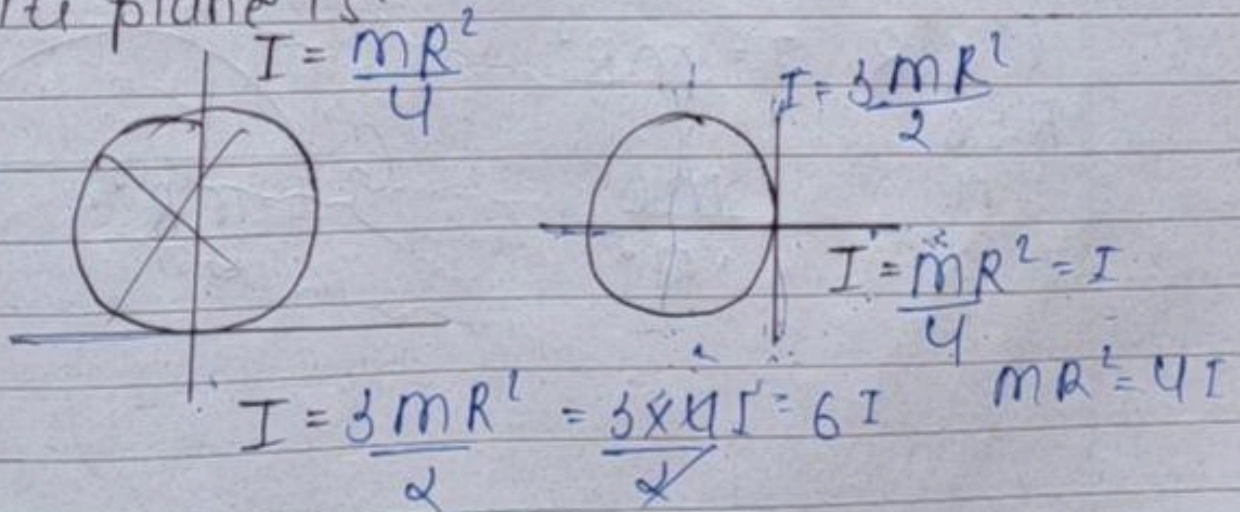 plane is
I = mR²/4
I = 3mR²/2
I = mR²/4 = I
mR² = 4I
I = 3mR²/2 = 3×4I/2 = 6I